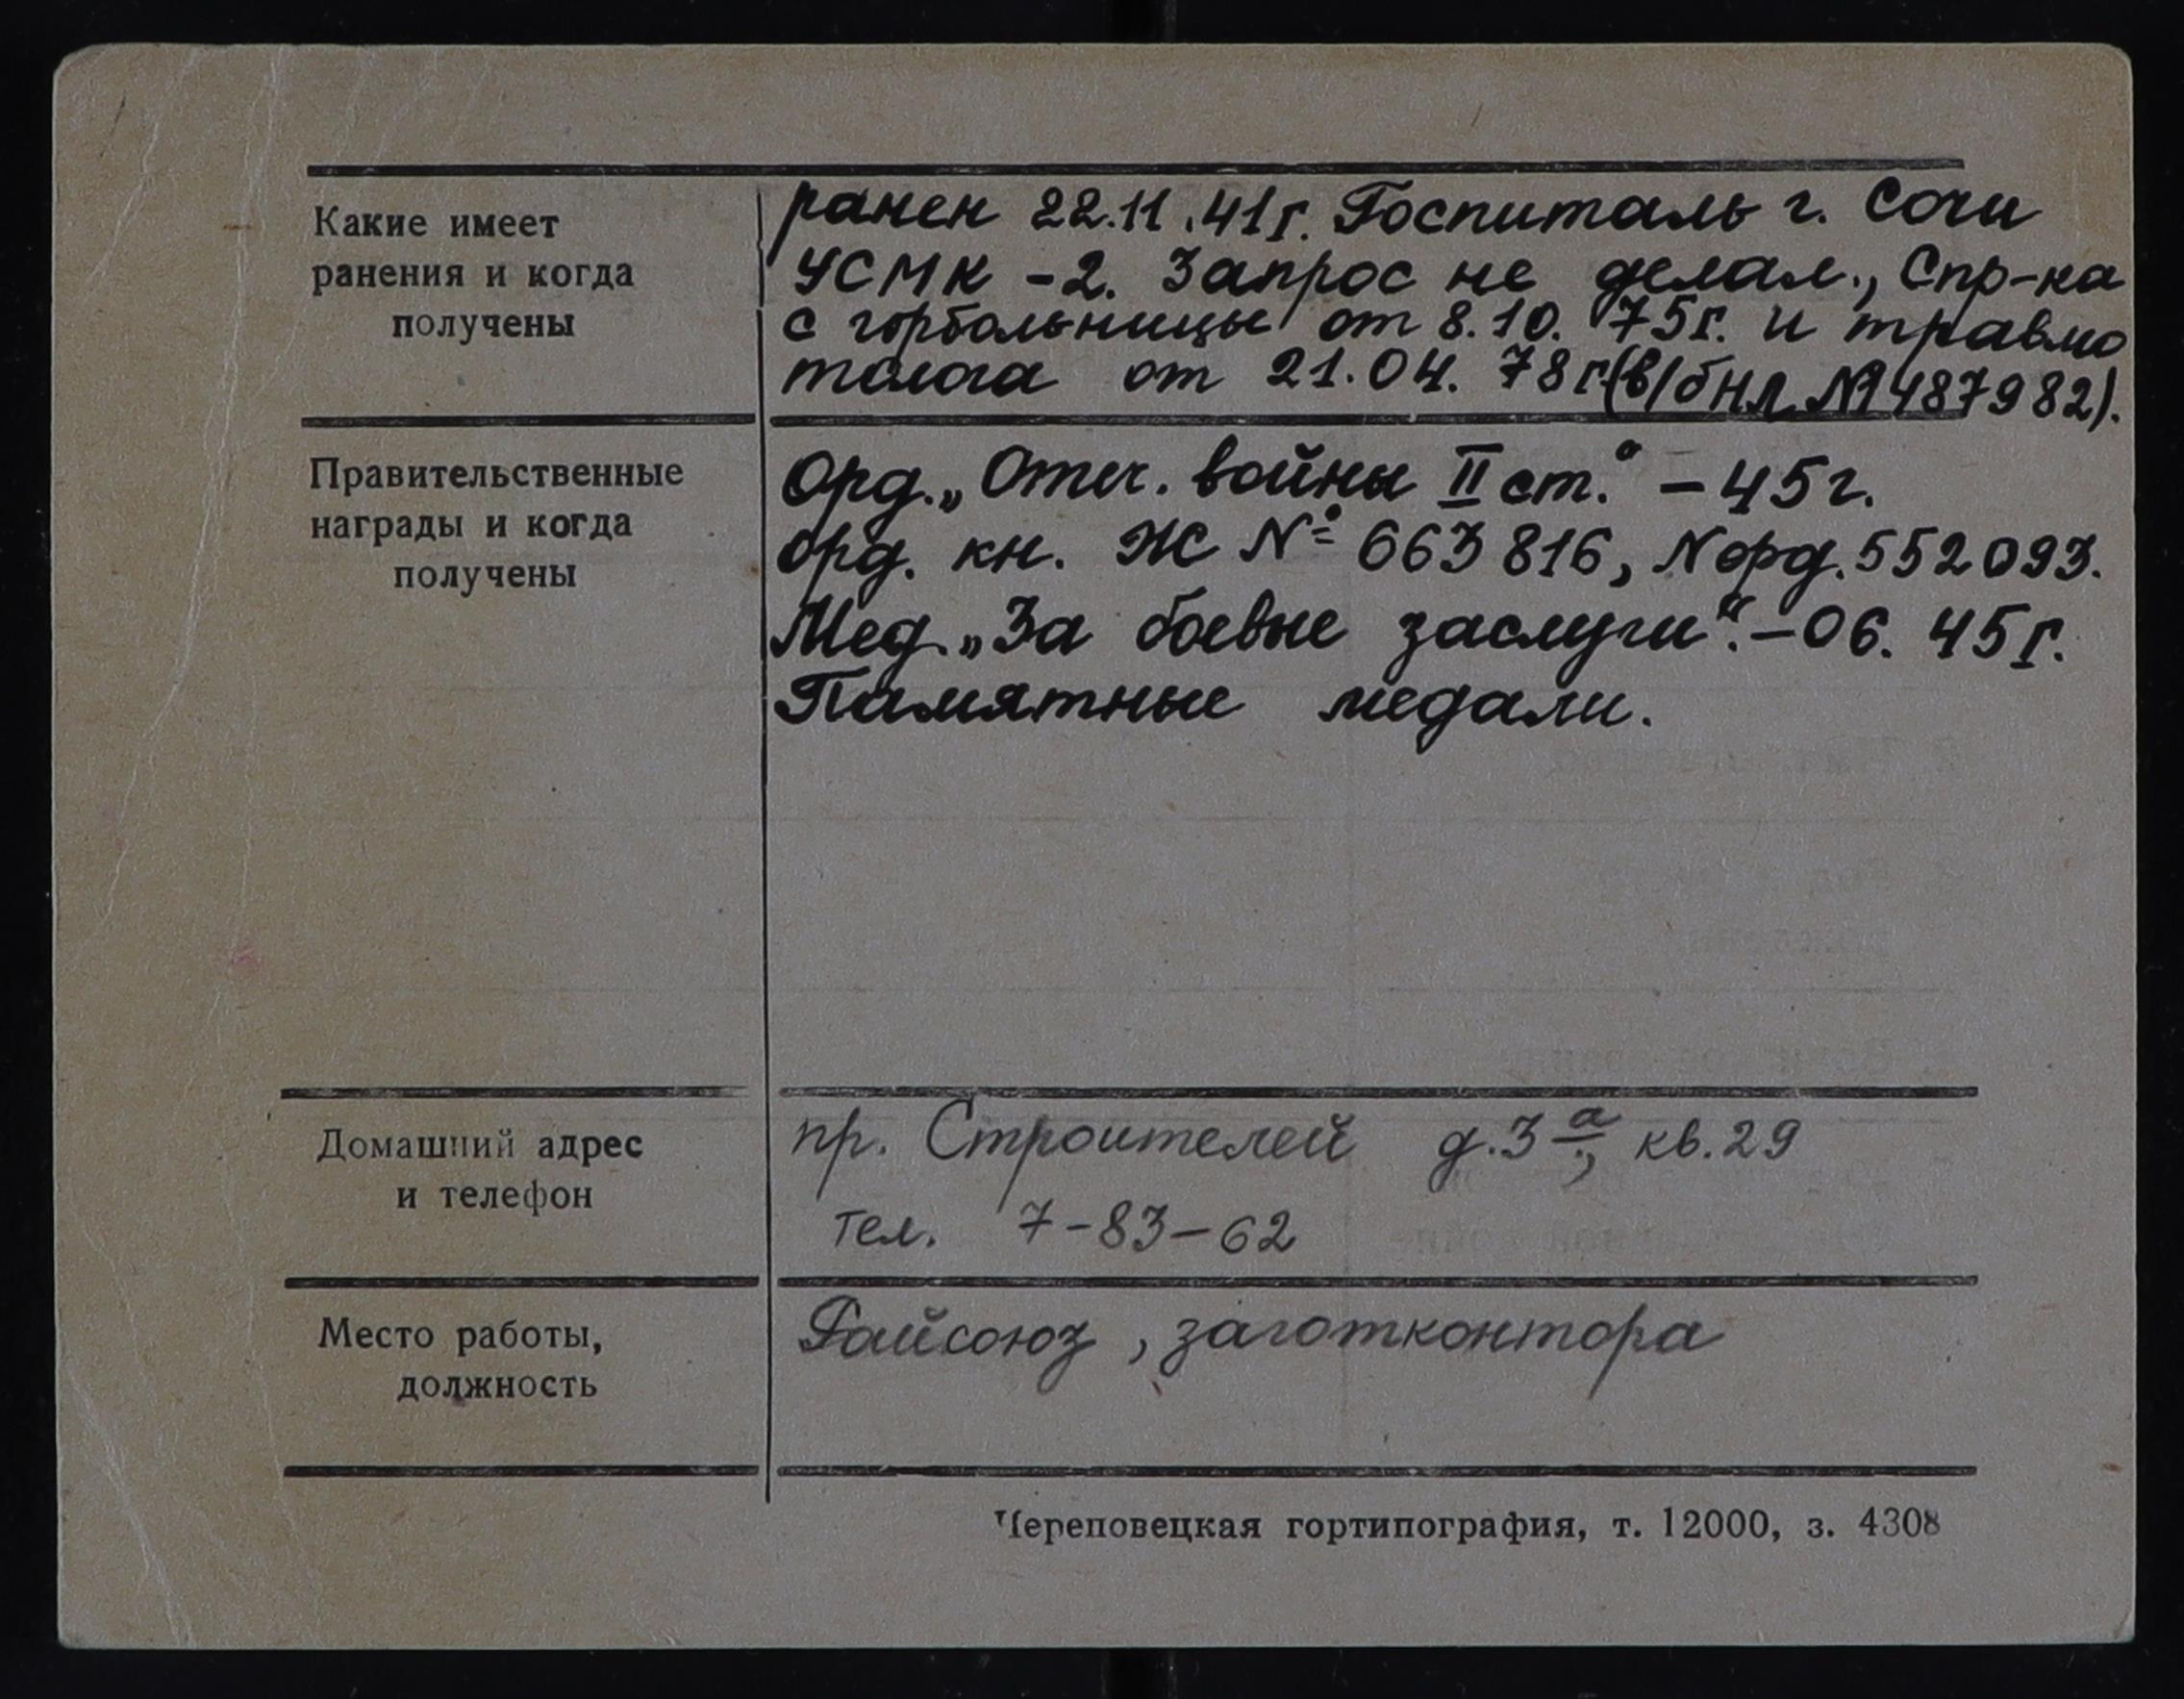 Какие имеет
ранения и когда
получены
ранен 22.11.41г. Госпиталь г. Сочи
УСМК -2. Запрос не делал., Спр-ка
с горбольницы от 8.10. 75г. и травмо
толога от 21.04. 78г.(в/б НЛ № 487982).
Правительственные
награды и когда
получены
Орд. „Отеч. войны II ст." – 45г.
Орд. кн. Ж № 663816, N орд. 552093.
Мед. „За боевые заслуги". – 06. 45г.
Памятные медали.
Домашний адрес
и телефон
пр. Строителей д. 3а, кв. 29
тел. 7-83-62
Место работы,
должность
Райсоюз, заготконтора
Череповецкая гортипография, т. 12000, з. 4308